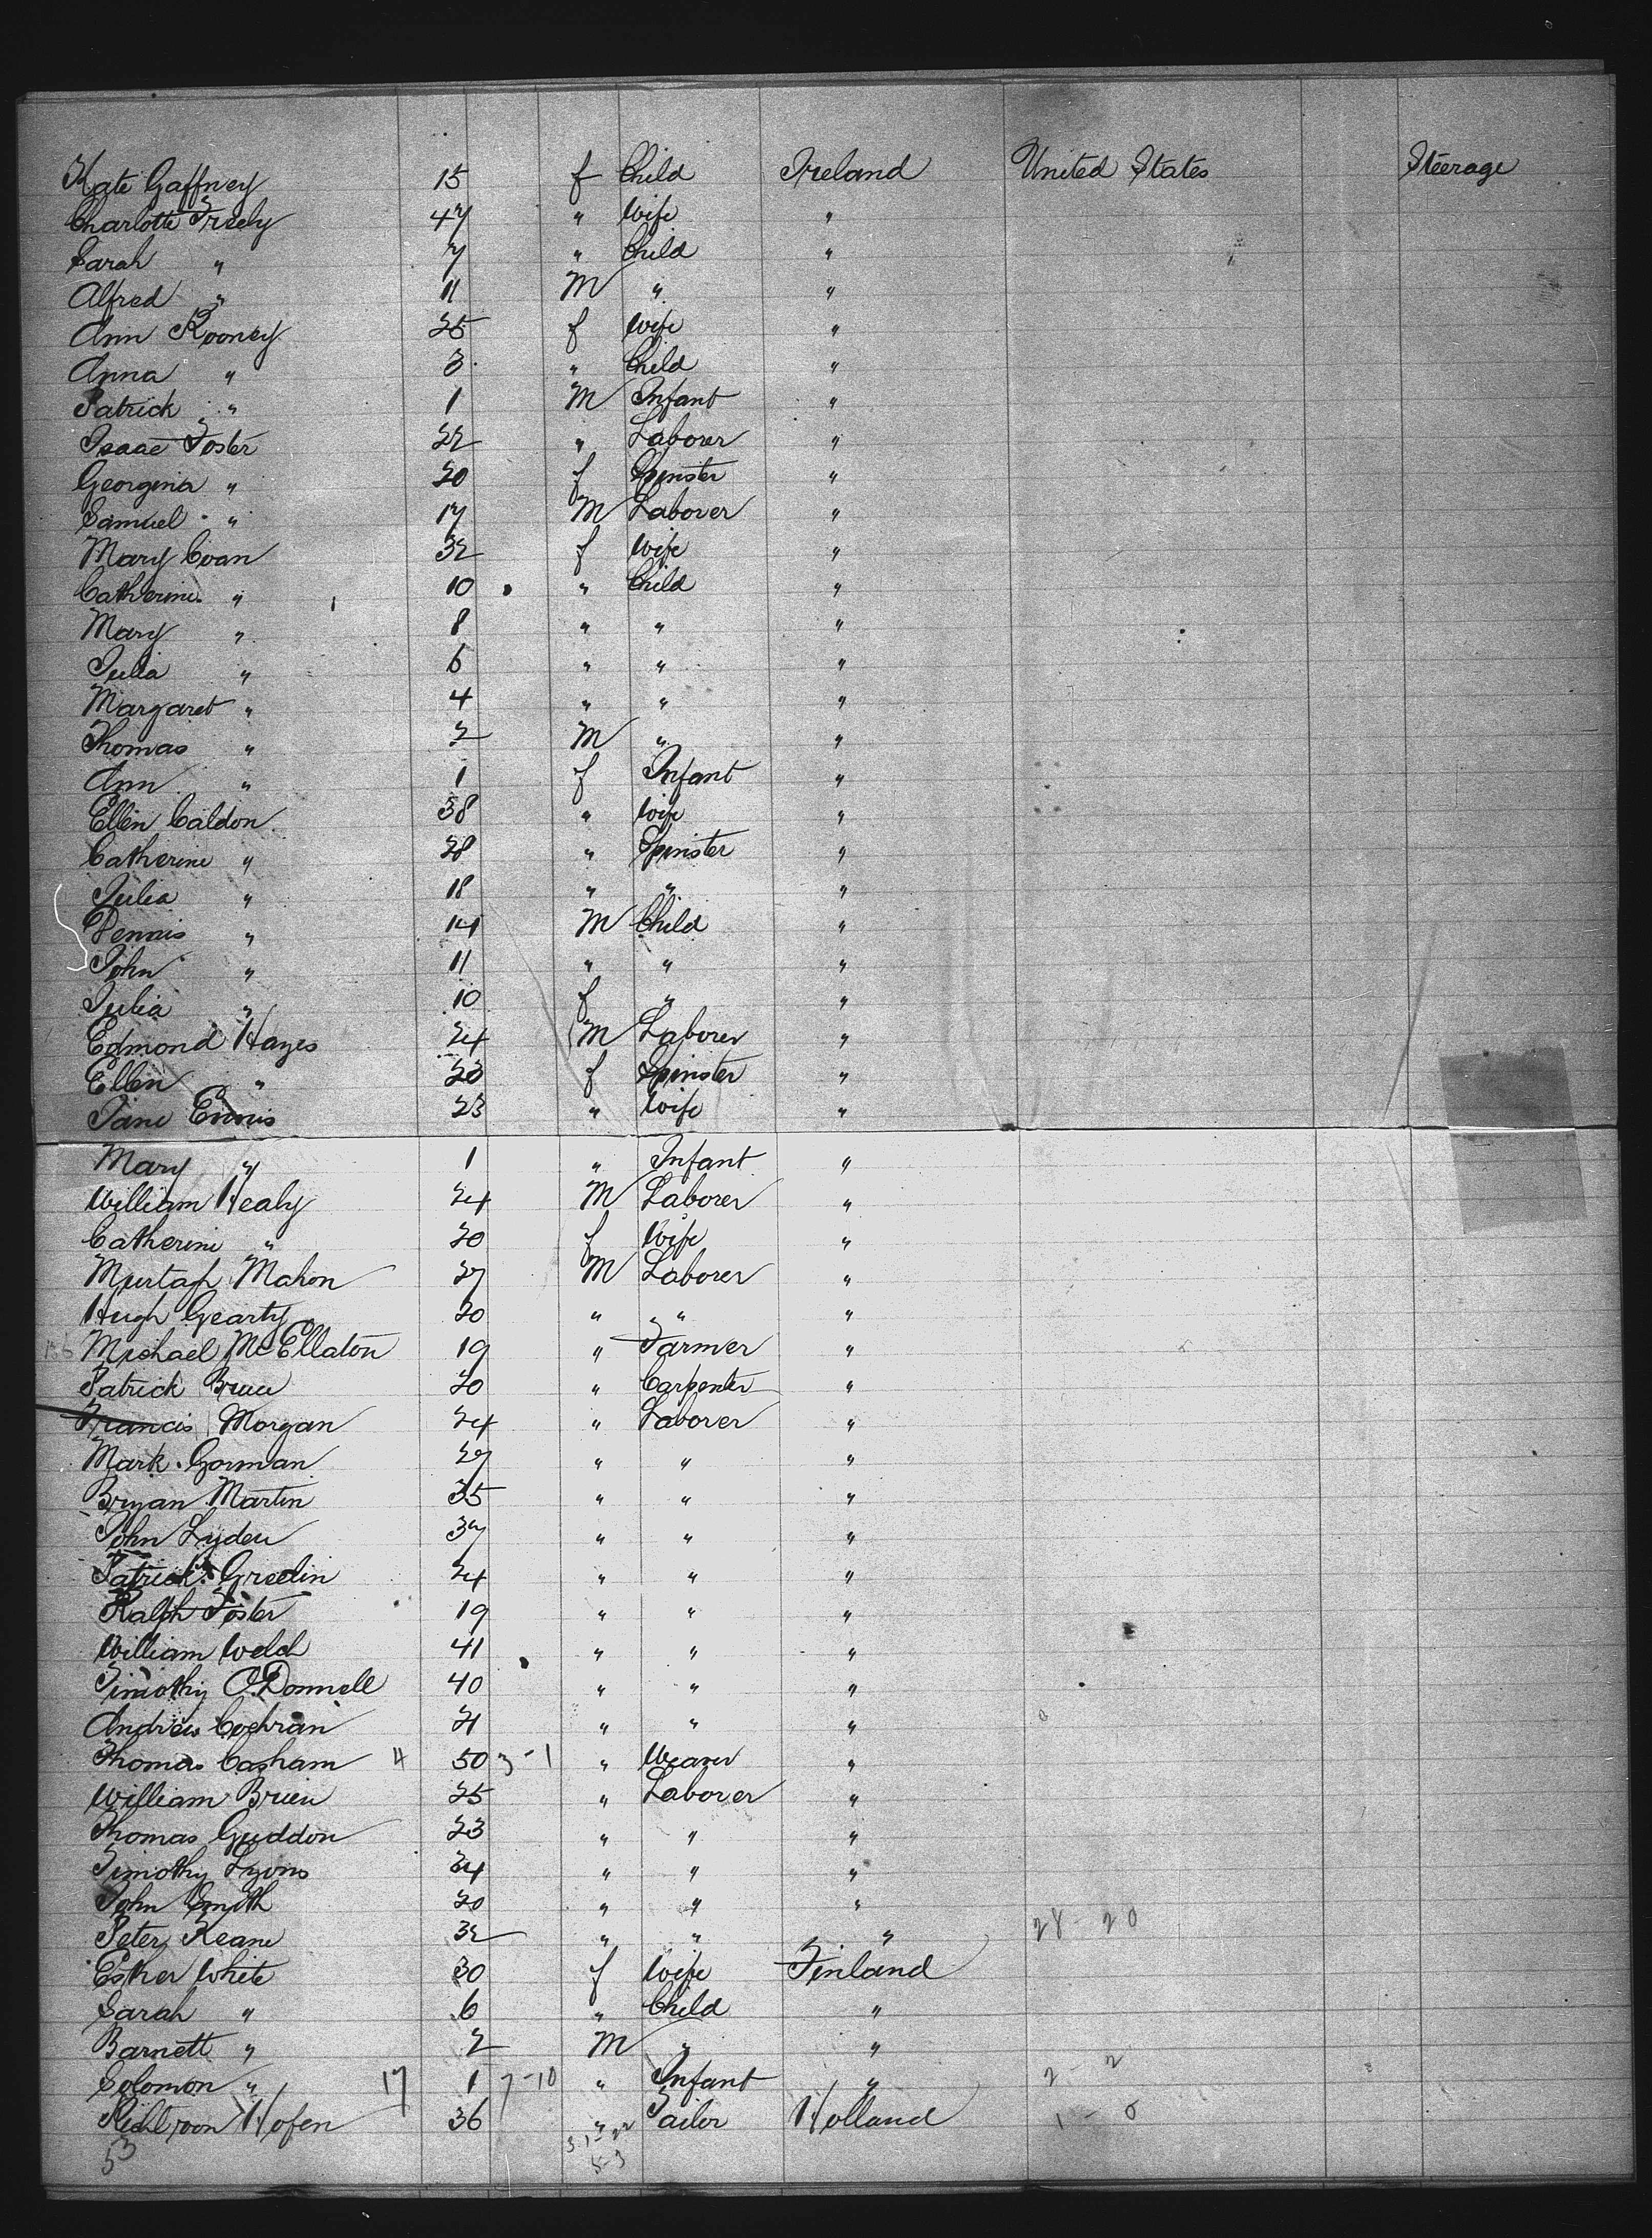 Kate Gaffney 15 f Child Ireland United States Steerage
Charlotte Freely 47 " Wife "
Sarah " 7 " Child "
Alfred " 11 M " "
Ann Rooney 25 f Wife "
Anna " 3 " Child "
Patrick " 1 M Infant "
Isaac Foster 22 " Laborer "
Georgina " 20 f Spinster "
Samuel " 17 M Laborer "
Mary Coan 32 f Wife "
Catherine " 10 " Child "
Mary " 8 " " "
Julia " 6 " " "
Margaret " 4 " " "
Thomas " 2 M " "
Ann " 1 f Infant "
Ellen Caldon 38 " Wife "
Catherine " 28 " Spinster "
Julia " 18 " " "
Dennis " 14 M Child "
John " 11 " " "
Julia " 10 f " "
Edmond Hayes 24 M Laborer "
Ellen " 23 f Spinster "
Jane Ennis 23 " Wife "
Mary " 1 " Infant "
William Healy 24 M Laborer "
Catherine " 20 f Wife "
Murtagh Mahon 27 M Laborer "
Hugh Gearty 20 " " "
Michael McEllaton 19 " Farmer "
Patrick 20 " Carpenter "
Francis Morgan 24 " Laborer "
Mark Gorman 27 " " "
Bryan Martin 35 " " "
John Lyden 37 " " "
Patrick Greelin 24 " " "
Ralph Foster 19 " " "
William Welch 41 " " "
Timothy O'Donnell 40 " " "
Andrew Cochran 21 " " "
Thomas Casham 4 50 3-1 " Weaver "
William Brien 25 " Laborer "
Thomas Guddon 23 " " "
Timothy Lyons 24 " " "
John Smith 20 " " "
Peter Keane 32 " " " 28-20
Esther White 30 f Wife Finland
Sarah " 6 " Child "
Barnett " 2 M " "
Solomon " 17 1 7-10 " Infant " 2-2
von Hofen 36 " Tailor Holland 1-0
53 5-3